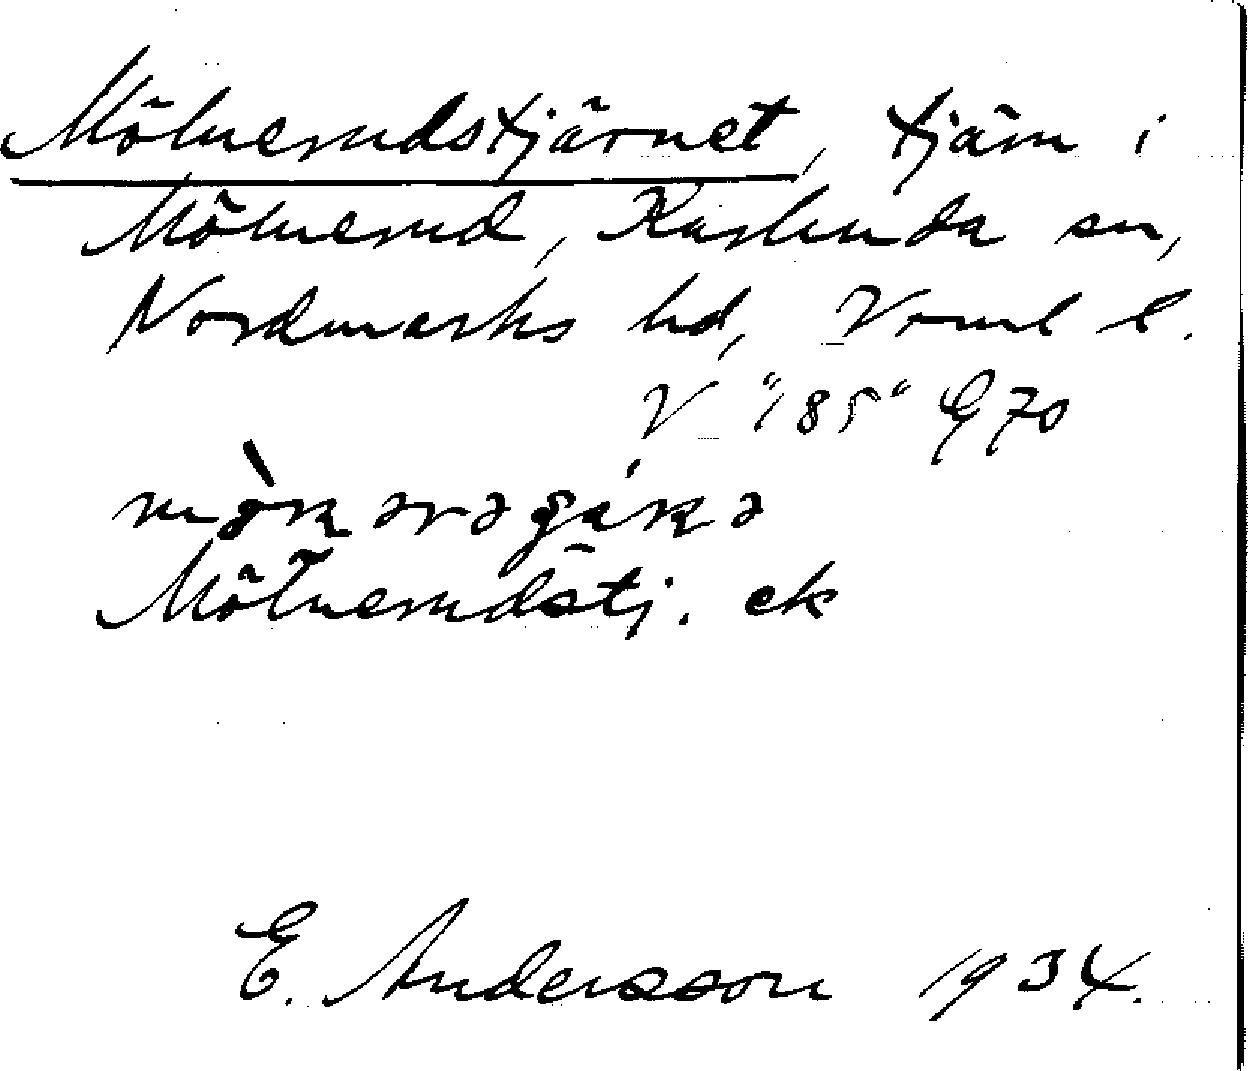 Mölnerudstjärnet, tjärn i
Mölnerud, Karlanda sn,
Nordmarks hd, Vrml l.
V "185" G 70
Mölnerudstj. ek
E. Andersson 1934.